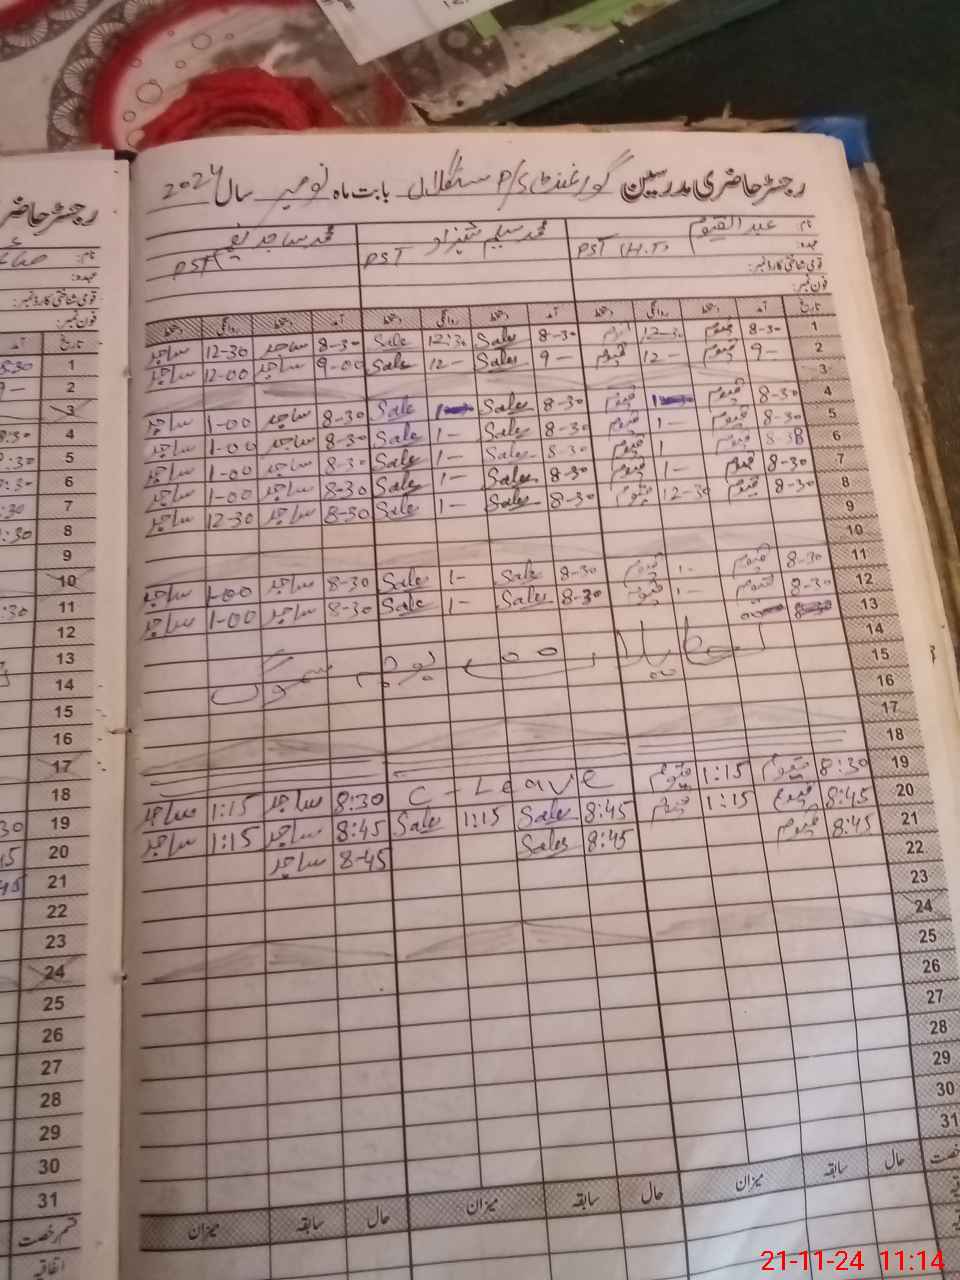 رجسٹر حاضری مدرسین گورنمنٹ P/S بابت ماہ نومبر سال 2024
نام: عبدالقیوم محمد سلیم شہزاد محمد ساجد
عہدہ: PST (H.T) PST PST
قومی شناختی کارڈ نمبر:
فون نمبر:
تاریخ آمد دستخط روانگی دستخط آمد دستخط روانگی دستخط آمد دستخط روانگی دستخط
1 8-30 قیوم 12-30 قیوم 8-30 Sale 12:30 Sale 8-30 ساجد 12-30 ساجد
2 9- قیوم 12- قیوم 9- Sale 12- Sale 9-00 ساجد 12-00 ساجد
3
4 8-30 قیوم قیوم 8-30 Sale Sale 8-30 ساجد 1-00 ساجد
5 8-30 قیوم 1- قیوم 8-30 Sale 1- Sale 8-30 ساجد 1-00 ساجد
6 8-30 قیوم 1 قیوم 8-30 Sale 1- Sale 8-30 ساجد 1-00 ساجد
7 8-30 قیوم 1- قیوم 8-30 Sale 1- Sale 8-30 ساجد 1-00 ساجد
8 8-30 قیوم 12-30 قیوم 8-30 Sale 1- Sale 8-30 ساجد 12-30 ساجد
9
10
11 8-30 قیوم 1- قیوم 8-30 Sale 1- Sale 8-30 ساجد 1-00 ساجد
12 8-30 قیوم 1- قیوم 8-30 Sale 1- Sale 8-30 ساجد 1-00 ساجد
13
14
15
16
17
18
19 8:30 قیوم 1:15 قیوم C-Leave 8:30 ساجد 1:15 ساجد
20 8:45 قیوم 1:15 قیوم 8:45 Sale 1:15 Sale 8:45 ساجد 1:15 ساجد
21 8:45 قیوم 8:45 Sale 8-45 ساجد
22
23
24
25
26
27
28
29
30
31
حال سابقہ میزان حال سابقہ میزان حال سابقہ میزان
رجسٹر حاضر
نام:
عہدہ:
قومی شناختی کارڈ نمبر:
فون نمبر:
تاریخ آمد
1
2
3
4
5
6
7
8
9
10
11
12
13
14
15
16
17
18
19
20
21
22
23
24
25
26
27
28
29
30
31
قسم رخصت
اتفاقیہ
21-11-24 11:14